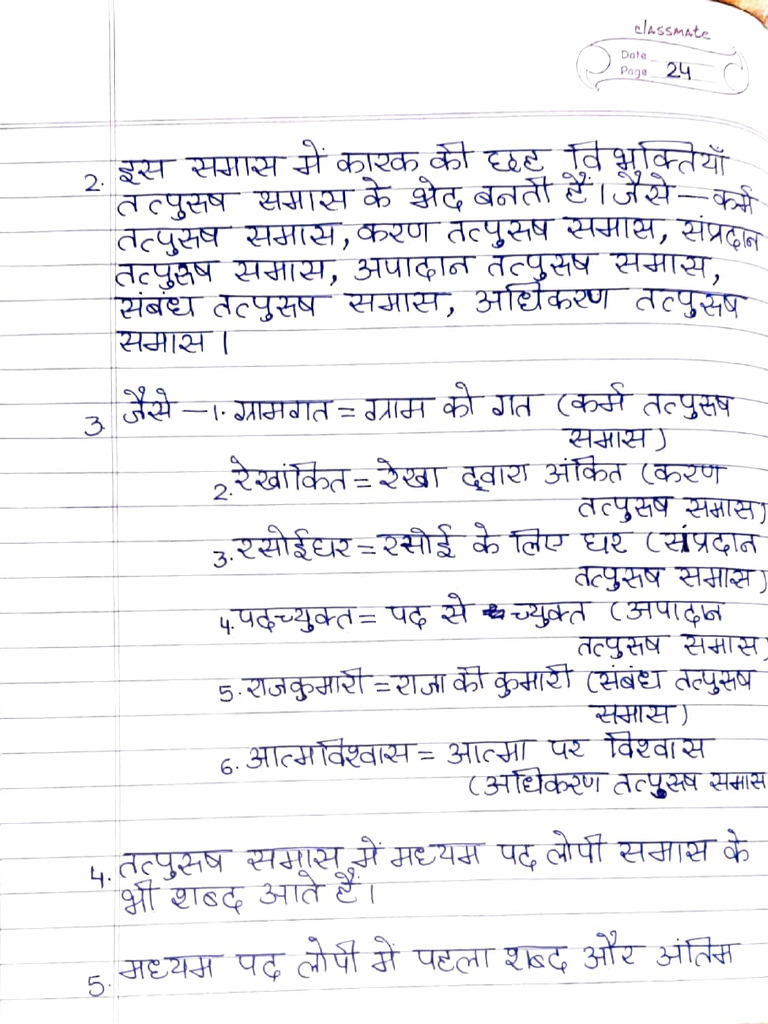 classmate
Date
Page 24
2. इस समास में कारक की छह विभक्तियाँ
तत्पुरुष समास के भेद बनती हैं। जैसे — कर्म
तत्पुरुष समास, करण तत्पुरुष समास, संप्रदान
तत्पुरुष समास, अपादान तत्पुरुष समास,
संबंध तत्पुरुष समास, अधिकरण तत्पुरुष
समास।
3. जैसे — 1. ग्रामगत = ग्राम को गत (कर्म तत्पुरुष
समास)
2. रेखांकित = रेखा द्वारा अंकित (करण
तत्पुरुष समास)
3. रसोईघर = रसोई के लिए घर (संप्रदान
तत्पुरुष समास)
4. पदच्युक्त = पद से च्युक्त (अपादान
तत्पुरुष समास)
5. राजकुमारी = राजा की कुमारी (संबंध तत्पुरुष
समास)
6. आत्मविश्वास = आत्मा पर विश्वास
(अधिकरण तत्पुरुष समास
4. तत्पुरुष समास में मध्यम पद लोपी समास के
भी शब्द आते हैं।
5. मध्यम पद लोपी में पहला शब्द और अंतिम